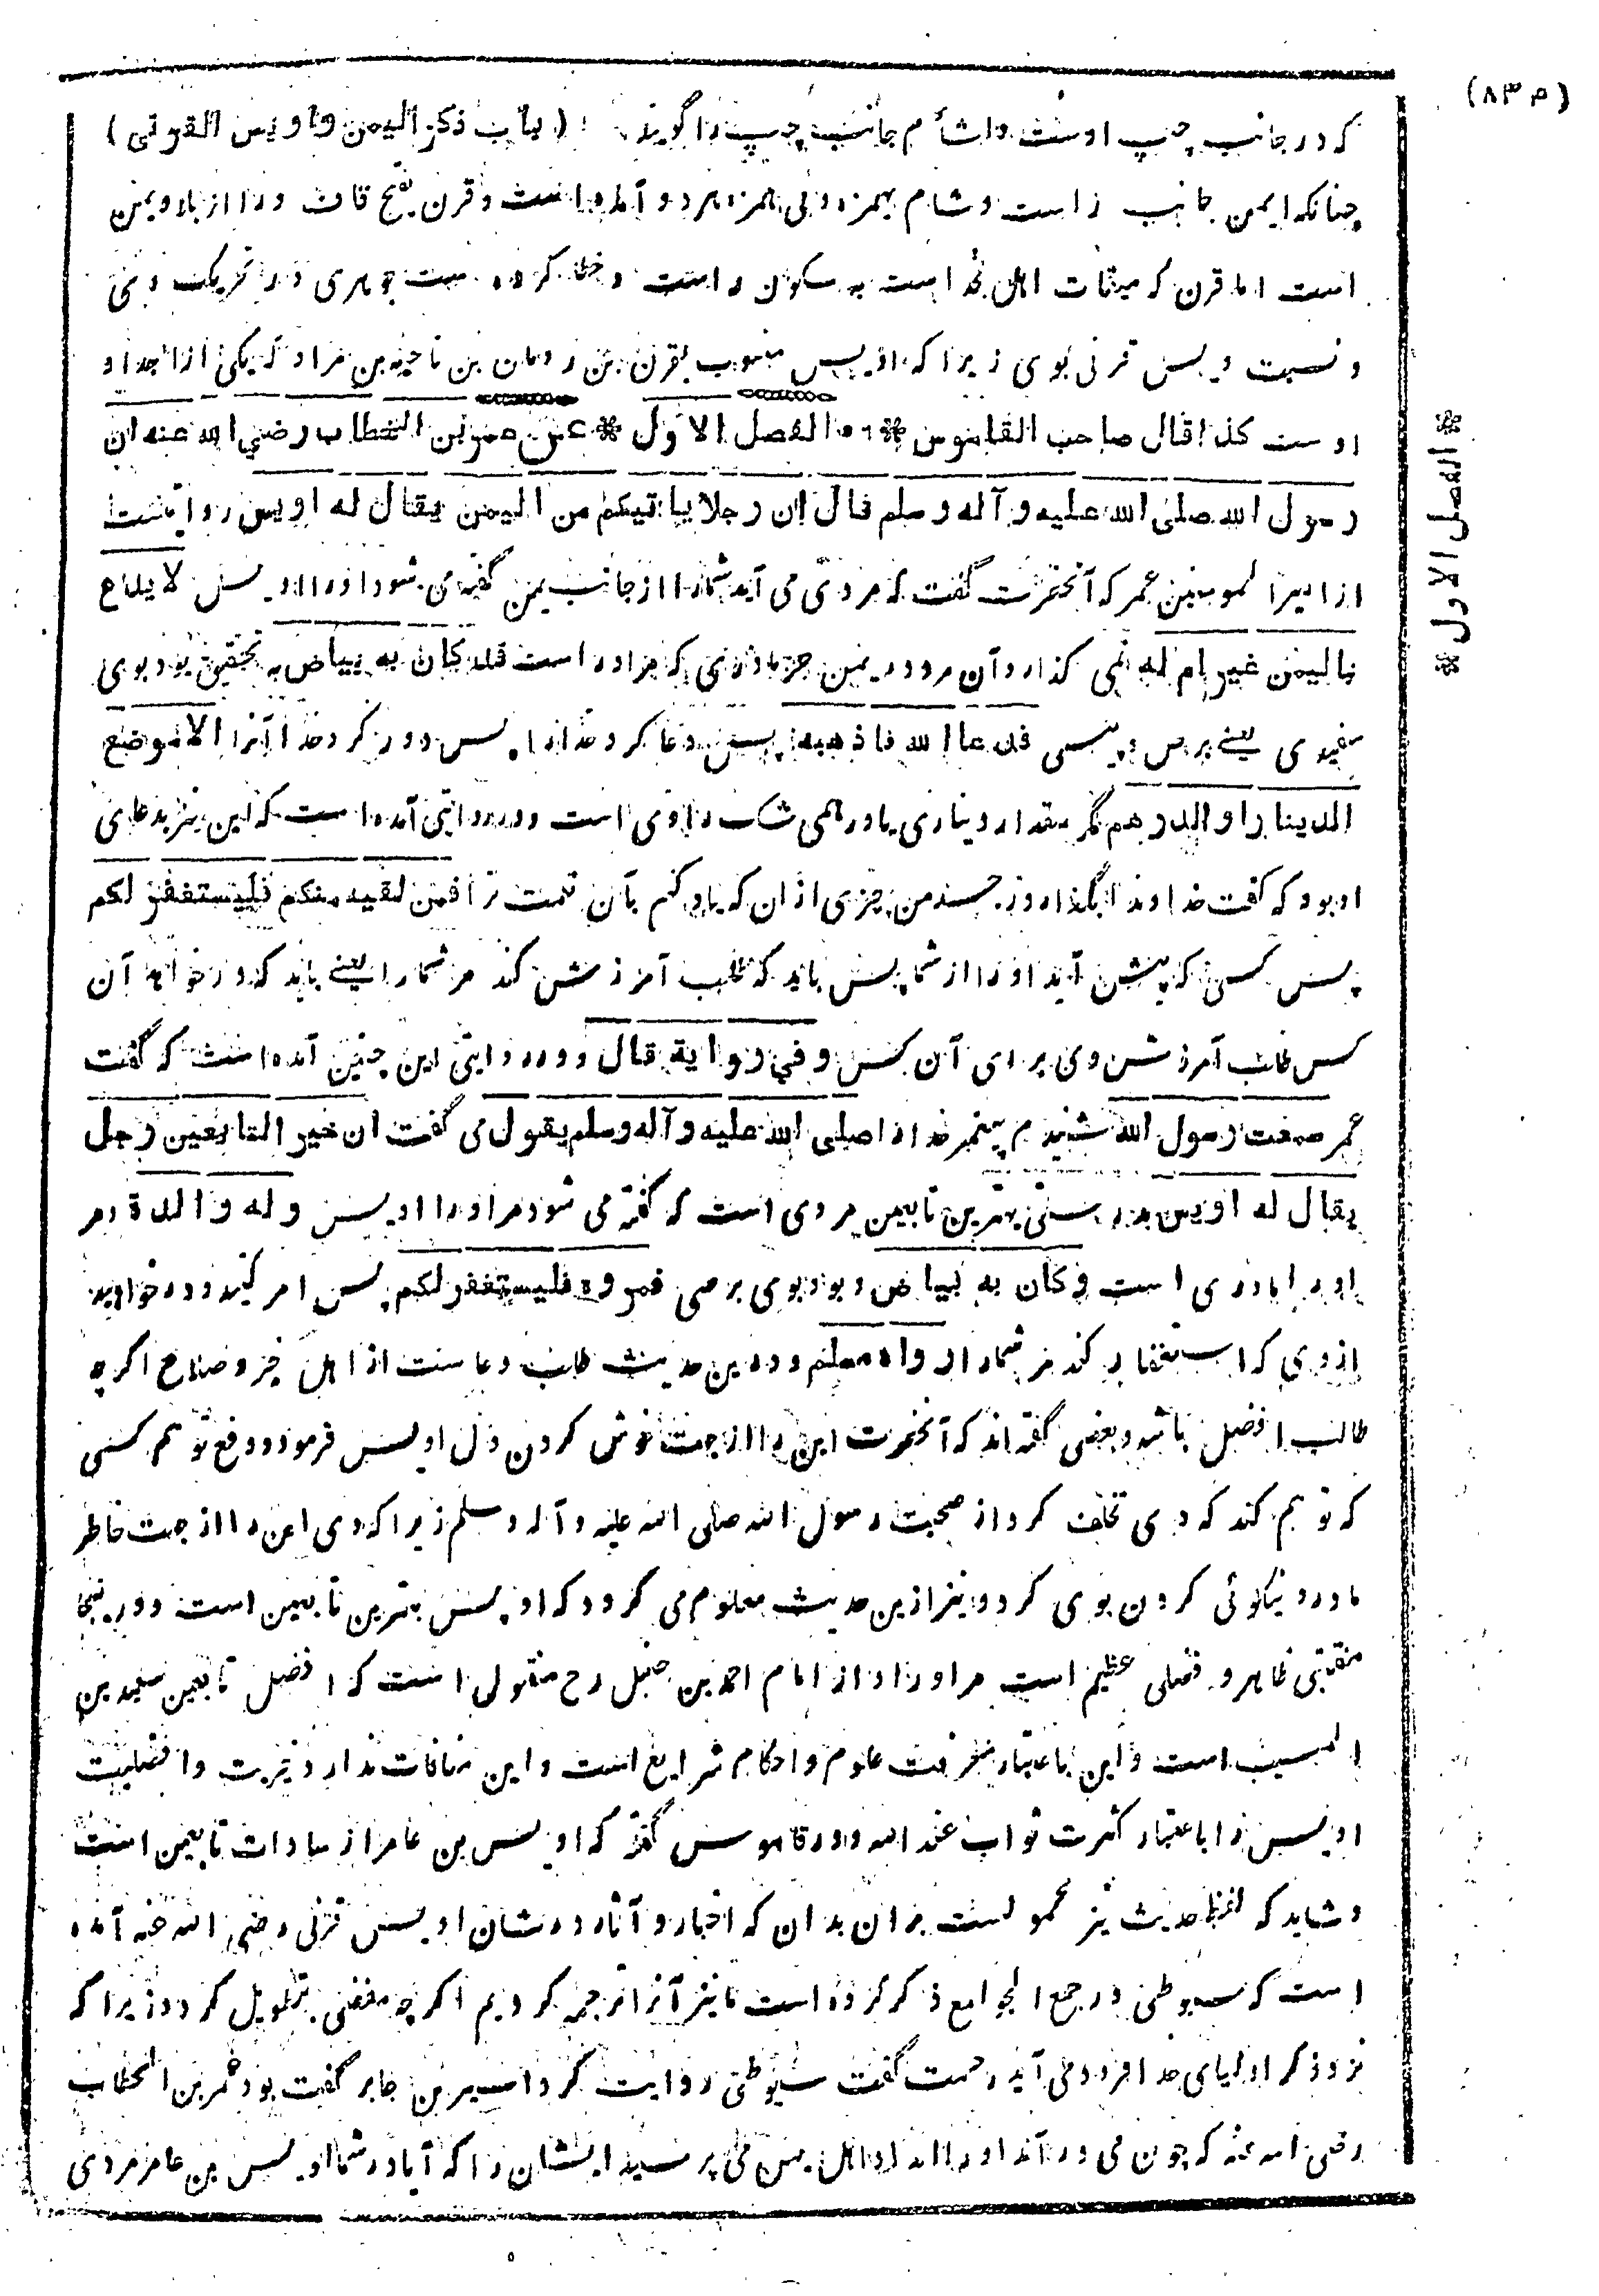 (۸۳م)
که در جانب چپ اوست واشأم جانب چپ را گویند (باب ذکر الیمن واویس القرنی)
چنانکه ایمن جانب راست وشام بهمزه وبی همزه هردو آمده است وقرن بفتح قاف ورا از بلاد یمن
است اما قرن که میقات اهل نجد است به سکون راست وخطا کرده است جوهری در تحریک وی
ونسبت اویس قرنی بوی زیرا که اویس منسوب بقرن بن رومان بن ناجیه بن مراد که یکی از اجداد
اوست کذا قال صاحب القاموس * الفصل الاول * عن عمر بن الخطاب رضی الله عنه ان
رسول الله صلی الله علیه وآله وسلم قال ان رجلا یاتیکم من الیمن یقال له اویس روایتست
از امیر المومنین عمر که آنحضرت گفت که مردی می آید شمارا از جانب یمن گفته می شود اورا اویس لا یدع
بالیمن غیر ام له نمی گذارد آن مرد در یمن جز مادری که مر اوراست قد کان به بیاض به تحقیق بود بوی
سفیدی یعنی برص وپیسی فدعا الله فاذهبه پس دعا کرد خدا را پس دور کرد خدا آنرا الا موضع
الدینار او الدرهم مگر مقدار دیناری یا درهمی شک راوی است ودر روایتی آمده است که این نیز بدعای
او بود که گفت خداوندا بگذار در جسد من چیزی ازان که یاد کنم بآن نعمت ترا فمن لقیه منکم فلیستغفر لکم
پس کسی که پیش آید اورا از شما پس باید که طلب آمرزش کند مر شمارا یعنی باید که درخواهد آن
کس طلب آمرزش وی برای آن کس وفی روایة قال ودر روایتی این چنین آمده است که گفت
عمر سمعت رسول الله شنیدم پیغمبر خدا را صلی الله علیه وآله وسلم یقول می گفت ان خیر التابعین رجل
یقال له اویس بدرستی بهترین تابعین مردی است که گفته می شود مر اورا اویس وله والدة ومر
اورا مادری است وکان به بیاض وبود بوی برصی فمروه فلیستغفر لکم پس امر کنید ودرخواهید
ازوی که استغفار کند مر شمارا رواه مسلم ودرین حدیث طلب دعاست از اهل خیر وصلاح اگرچه
طالب افضل باشد وبعضی گفته اند که آنحضرت این را از جهت خوش کردن دل اویس فرمود ودفع توهم کسی
که توهم کند که وی تخلف کرد از صحبت رسول الله صلی الله علیه وآله وسلم زیرا که وی این را از جهت خاطر
مادر ونیکوئی کردن بوی کرد ونیز ازین حدیث معلوم می گردد که اویس بهترین تابعین است ودرینجا
منقبتی ظاهر وفضلی عظیم است مر اورا واز امام احمد بن حنبل رح منقول است که افضل تابعین سعید بن
المسیب است واین باعتبار معرفت علوم واحکام شرایع است واین منافات ندارد خیریت وافضلیت
اویس را باعتبار کثرت ثواب عند الله ودر قاموس گفته که اویس بن عامر از سادات تابعین است
وشاید که لفظ حدیث نیز محمولست بران بدان که اخبار وآثار در شان اویس قرنی رضی الله عنه آمده
است که سیوطی در جمع الجوامع ذکر کرده است ما نیز آنرا ترجمه کردیم اگرچه مفضی بتطویل گردد زیرا که
نزد ذکر اولیای خدا فرود می آید رحمت گفت سیوطی روایت کرد اسیر بن جابر گفت بود عمر بن الخطاب
رضی الله عنه که چون می در آمد اورا امداد اهل یمن می پرسید ایشان را که آیا در شما اویس بن عامر مردی
* الفصل الاول *